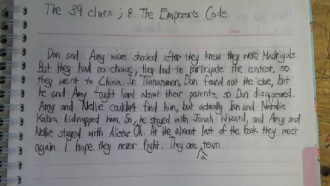 The 39 clues ; 8. The Emperor's Code
Dan and Amy were shocked after they knew they were Madrigals.
But they had no choice, they had to participate the contest, so
they went to China. In Tiananmen, Dan found out the clue, but
he and Amy fought hard about their parents, so Dan disappeared.
Amy and Nellie couldn't find him, but actually Ian and Natalie
Kabra kidnapped him. So, he stayed with Jonah Wizard, and Amy and
Nellie stayed with Alistair Oh. At the almost last of the book they meet
again. I hope they never fight. They are town.